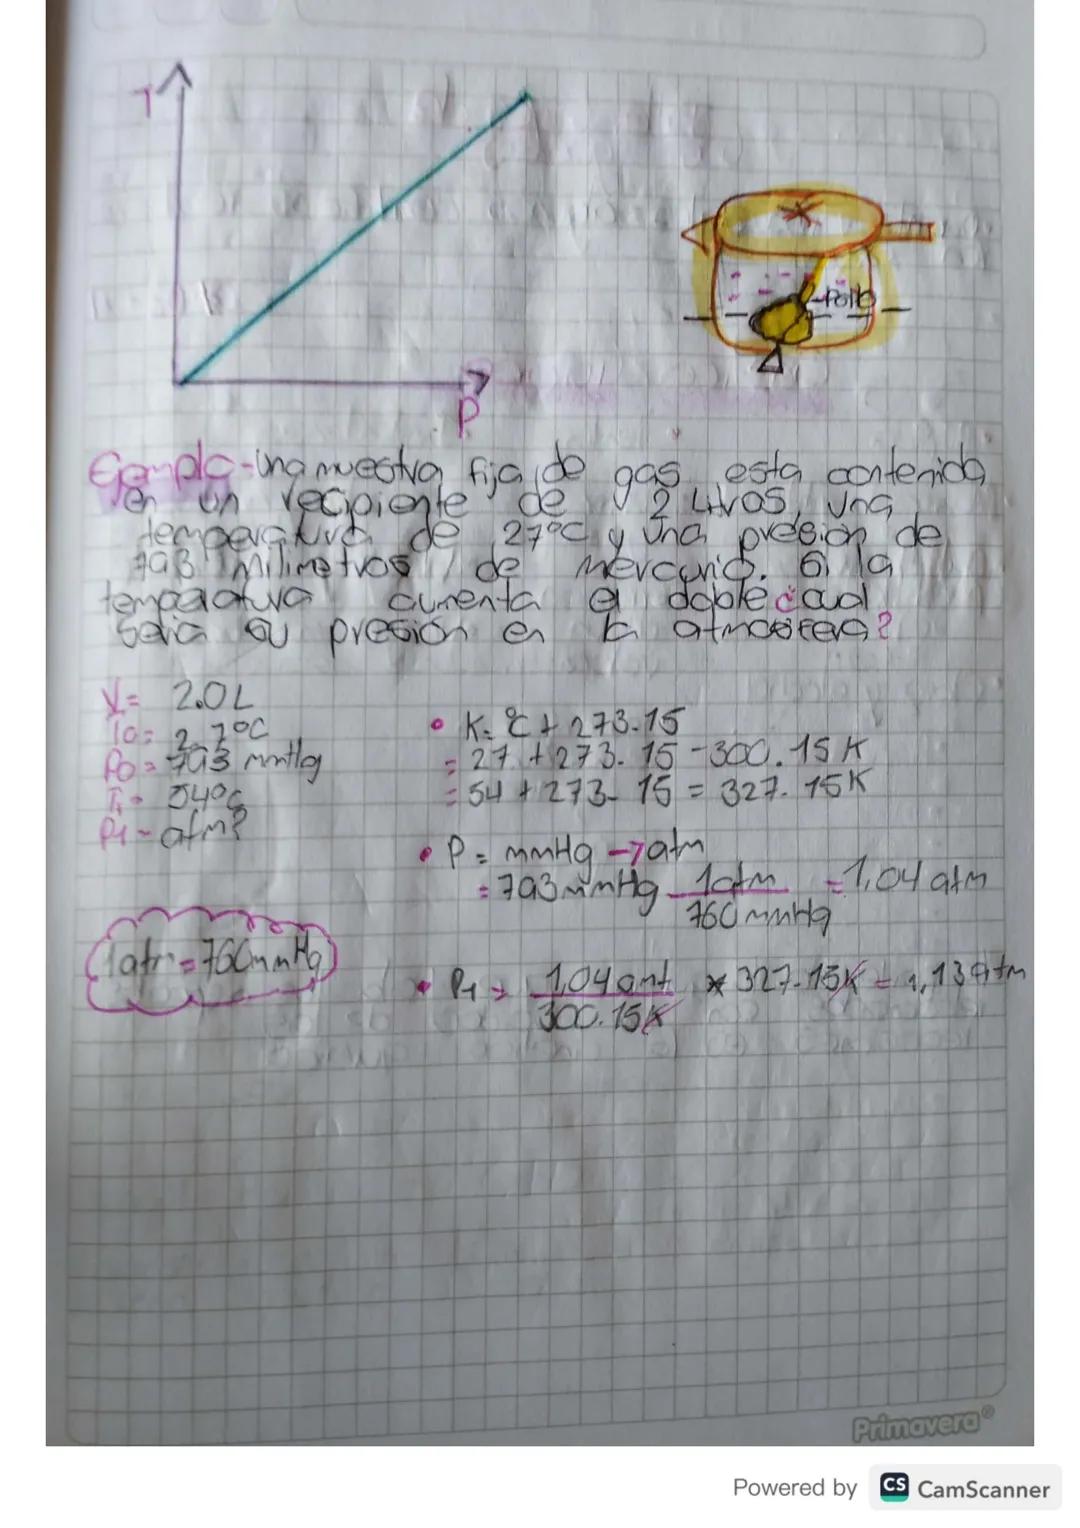 T
P
Pollo
Ejemplo-Una muestra fija de gas esta contenida
en un recipiente de 2 Litros, una
temperatura de 27°C y una presion de
793 milimetros de mercurio. Si la
temperatura aumenta el doble ¿cual
seria su presión en la atmosfera?
V= 2.0L
To= 27°C
Po= 793 mmHg
T1= 54°C
P1- atm?
1atm=760mmHg
• K= °C + 273.15
= 27 + 273.15 -300.15K
= 54 + 273.15 = 327.15K
• P = mmHg → atm
= 793mmHg 1atm = 1,04 atm
760mmHg
• P1 = 1,04 amt * 327.15K = 1,13 atm
300.15K
Primavera®
Powered by CS CamScanner